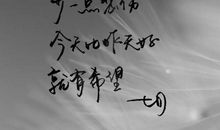 少一点悲伤
今天比昨天好
就有希望
七月